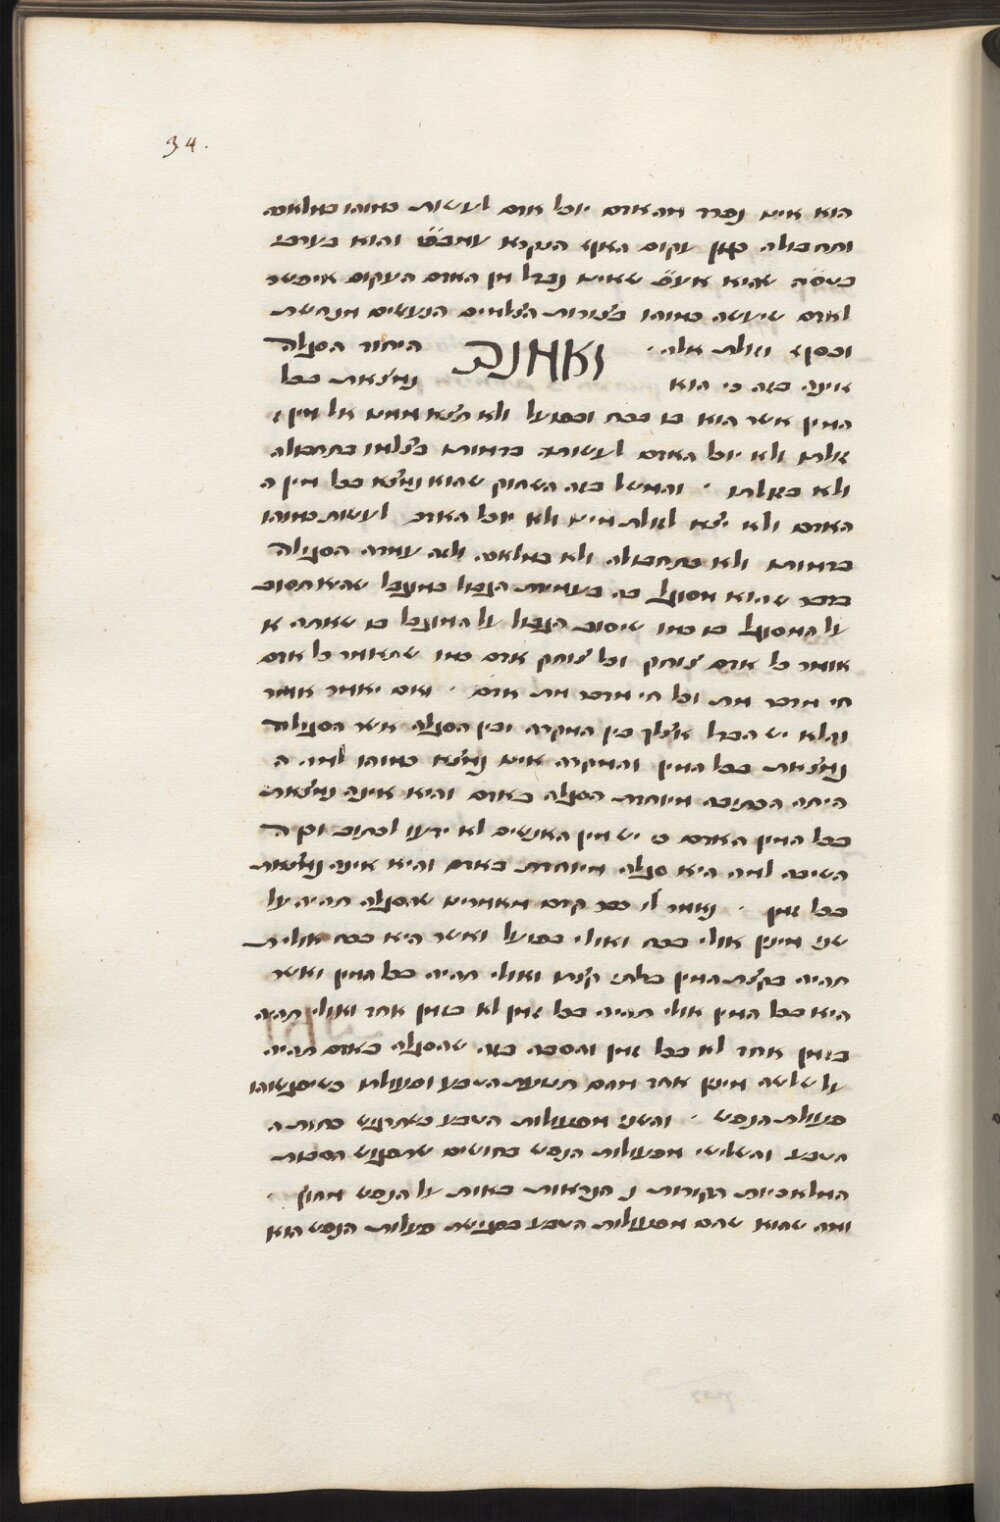 34.
הוא אינו נפרד מהאדם יוכל אדם לעשות כמוהו במלאכה
ותחבולה כגון עקום האף הנקרא והוא בערבי
שהוא שאינו נבדל מן האדם העקום איפשר
לאדם שיעשה כמוהו בצורות הצלמים הנעשים מנחשת
וכסף וזולת אלה. ואמנם היחוד הסגלה
אינה כזה כי הוא נמצאת בכל
המין אשר הוא בו בכח ובפועל ולא תצא ממנו אל מין
זולתו ולא יוכל האדם לעשותה בדמותו בצלמו בתחבולה
ולא בזולתו. והמשל בזה השחוק שהוא נמצא בכל מין ה
האדם ולא יצא לזולת מינו ולא יוכל האדם לעשות כמוהו
בדמותו ולא בתחבולה ולא במלאכה ולזה עמדה הסגולה
בדבר שהוא מסוגל בה בעמידת הגבול במוגבל שהיא תסוב
על המסוגל בו כמו שיסוב הגבול על המוגבל בו שאתה א
אומר כל אדם צוחק וכל צוחק אדם כמו שתאמר כל אדם
חי מדבר מת וכל חי מדבר מת אדם. ואם יאמר אומר
והלא יש הבדל אצלך בין המקרה ובין הסגלה אשר הסגולה
נמצאת בכל המין והמקרה אינו נמצא כמוהו למה ה
היתה הכתיבה מיוחדת הסגלה באדם והיא אינה נמצאת
בכל המין האדם כי יש מין האנשים לא ידעו לכתוב וכן ה
השיבה למה היא סגלה מיוחדת באדם והיא אינה נמצאת
בכל זמן. נאמר לו כבר קדם מאמרינו שהסגלה תהיה על
שני מינין אולי בכח ואולי בפועל ואשר היא בכח אולי ת
תהיה בקצת המין בלתי קצתו ואולי תהיה בכל המין ואשר
היא בכל המין אולי תהיה בכל זמן לא בזמן אחד ואולי תהיה
בזמן אחד לא בכל זמן והסבה בזה שהסגלה באדם תהיה
על שלשה מינין אחד מהם תשיעת הטבע ופעולתו כשיפגשוהו
פעולת הנפש. והשני מפעולות הטבע כשתפגיש כחות ה
הטבע והשלישי מפעולות הנפש בחושים שתפגיש הסבות
המלאכיות הקודמות הנראות באות על הנפש מחוץ.
ומה שהוא שהם מפעולות הטבע בפגישת פעלות הנפש הוא